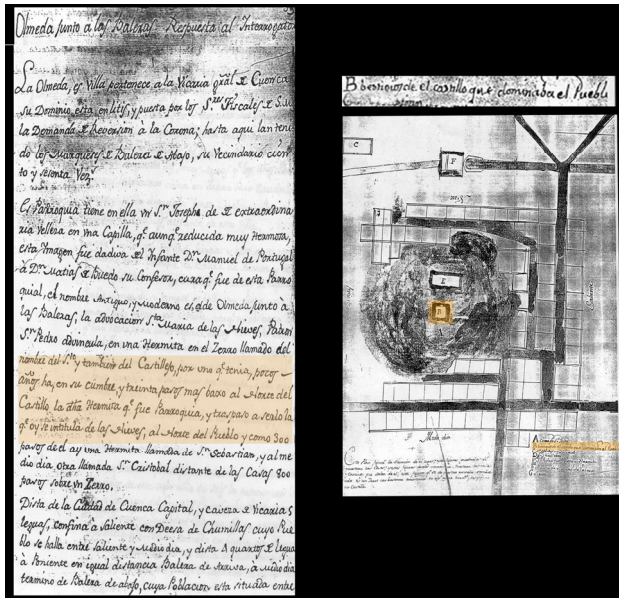 Olmeda junto a las Baleras. Respuesta al Interrogator
La Olmeda, es Villa pertenece a la Vicaria gral de Cuenca
su Dominio, esta en litis, y puesta por los S.res Fiscales de S.M.
la Demanda de Reversion à la Corona; hasta aqui lan teni
do los Marqueses de Balera de Abajo, su Vecindario cien
to y sesenta Vez.s
Es Parroquia tiene en ella vn S.n Joseph, de extraordina
ria Velleza en vna Capilla, q.e aunq.e reducida muy Hermosa,
esta Imagen fue dadiva del Infante D.n Manuel de Portugal
à D.n Matias de Buedo su Confesor, cura q.e fue de esta Parro
quial, el nombre Antiguo, y Moderno es el de Olmeda junto à
las Baleras, la advocacion S.ta Maria de las Nieves, Patron
S.n Pedro advincula, en vna Hermita en el Zerro llamado del
nombre del S.to y tambien del Castillejo, por vno q.e tenia, pocos
años ha, en su cumbre, y treinta pasos mas baxo al Norte del
Castillo, la dha Hermita q.e fue Parroquia, y traspaso a serlo la
q.e oy se intitula de las Nieves, al Norte del Pueblo y como 300
pasos de el ay vna Hermita llamada de S.n Sebastian, y al me
dio dia, otra llamada S.n Cristobal distante de las Casas 800
pasos sobre vn Zerro.
Dista de la Ciudad de Cuenca Capital, y caveza de Vicaria 5
leguas, confina à Saliente con Deesa de Chumillas cuyo Pue
blo se halla entre Saliente, y Medio dia, y dista 4 quartos de legua
à Poniente en igual distancia Balera de Arriva, à medio dia
termino de Balera de abajo, cuya Poblacion esta situada entre
B bestigios de el castillo que dominaba el Pueblo
C
F
E
B
Medio dia